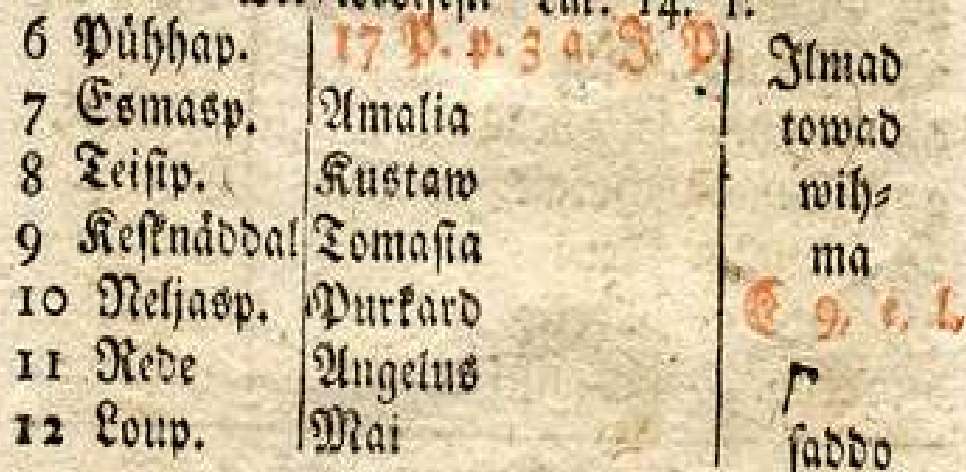 Luk. 14. 1.
6 Pühhap. 17 P. p. 3 a. J. P. Ilmad
7 Esmasp. Amalia towad
8 Teisip. Kustaw wih⸗
9 Kesknäddal Tomasia ma
10 Neljasp. Purkard 9, e. l.
11 Rede Angelus
12 Loup. Mai saddo